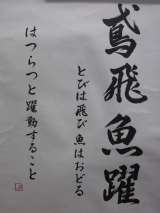 鳶飛魚躍
とびは飛び魚はおどる
はつらつと躍動すること